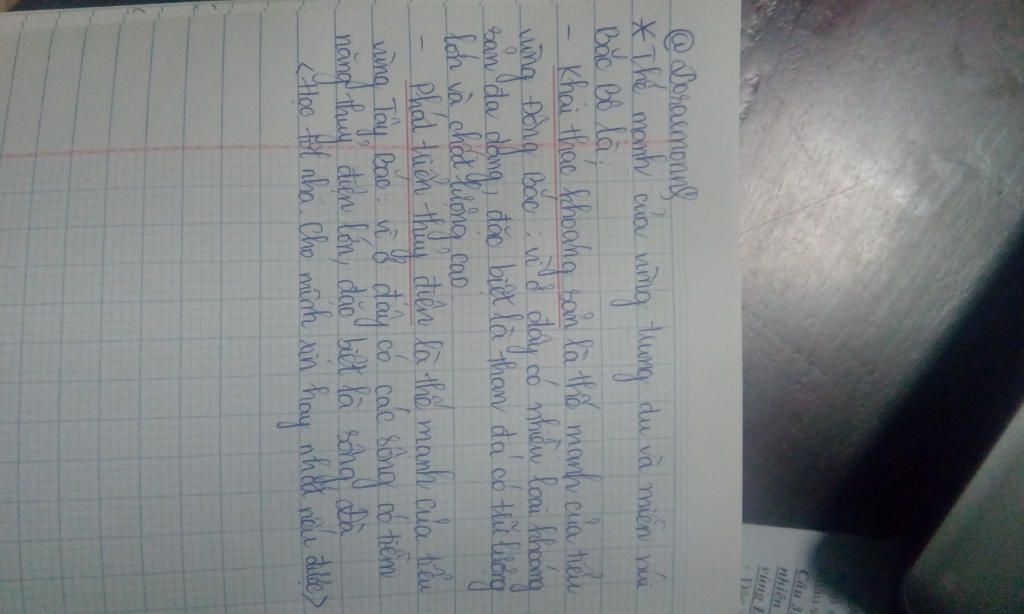 @ Doraemonng
* Thế mạnh của vùng trung du và miền núi
Bắc Bộ là:
- Khai thác khoáng sản là thế mạnh của tiểu
vùng Đông Bắc: vì ở đây có nhiều loại khoáng
sản đa dạng, đặc biệt là than đá có trữ lượng
lớn và chất lượng cao.
- Phát triển thuỷ điện là thế mạnh của tiểu
vùng Tây Bắc: vì ở đây có các sông có tiềm
năng thuỷ điện lớn, đặc biệt là sông Đà
<Học tốt nha. Cho mình xin hay nhất nếu được>
Câu 3
nhiên
vùng
- Đấ